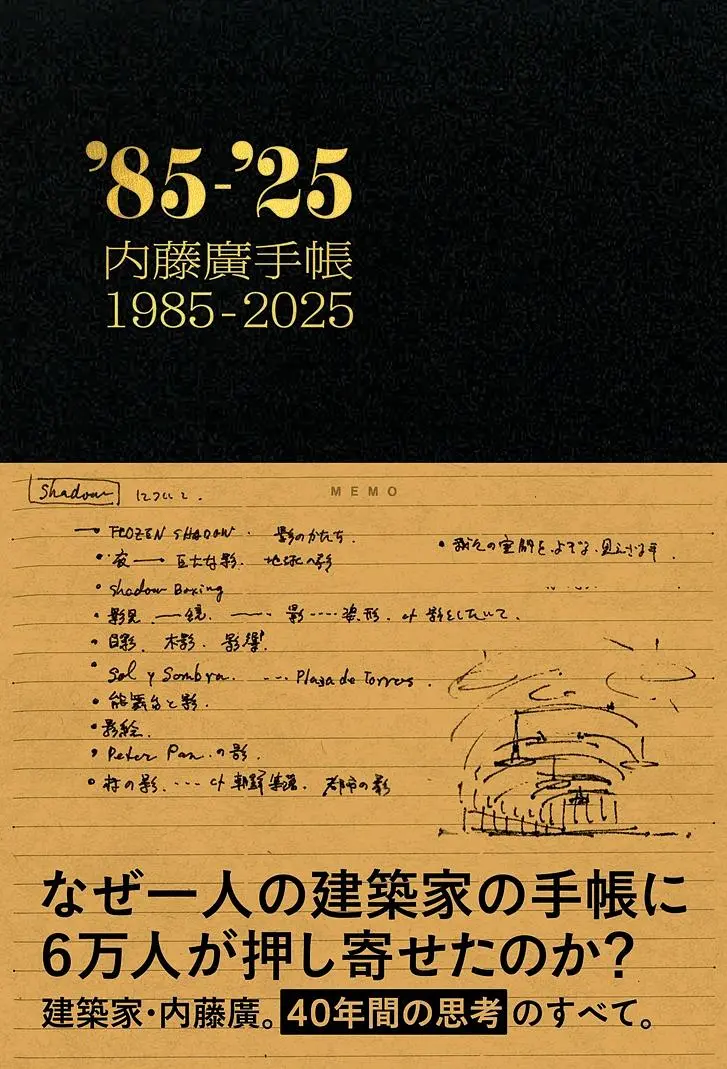 ’85-’25
内藤廣手帳
1985-2025
MEMO
Shadow について.
FROZEN SHADOW. 影のかたち.
夜 — 巨大な影. 地球の影
Shadow Boxing
影見 — 鏡. — 影 ---- 姿形. cf 影をしたいて.
日影. 木影. 影響.
Sol y Sombra. --- Plaza de Torros.
能舞台と影.
影絵.
Peter Pan の影.
村の影. --- cf 朝鮮集落. 都市の影
なぜ一人の建築家の手帳に
6万人が押し寄せたのか?
建築家・内藤廣。40年間の思考のすべて。